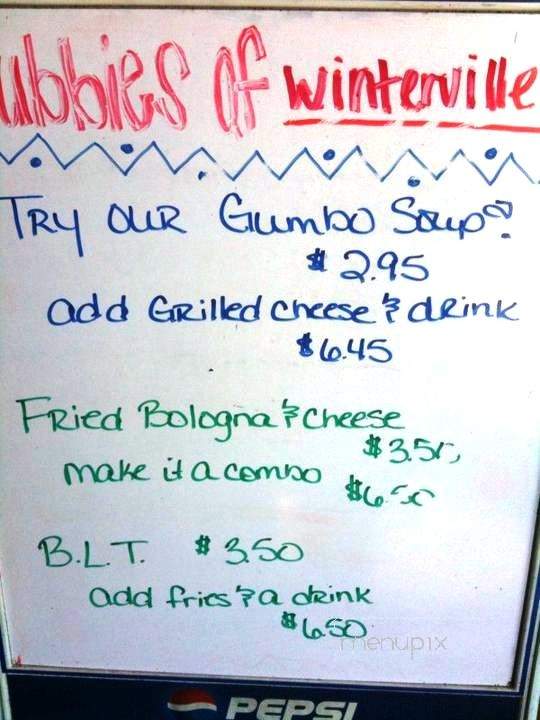 ubbies of Winterville
TRY OUR Gumbo Soup?
$ 2.95
add Grilled cheese & drink
$6.45
Fried Bologna & cheese
$3.50
make it a combo
$6.50
B.L.T. $ 3.50
add fries & a drink
$6.50
menupix
PEPSI